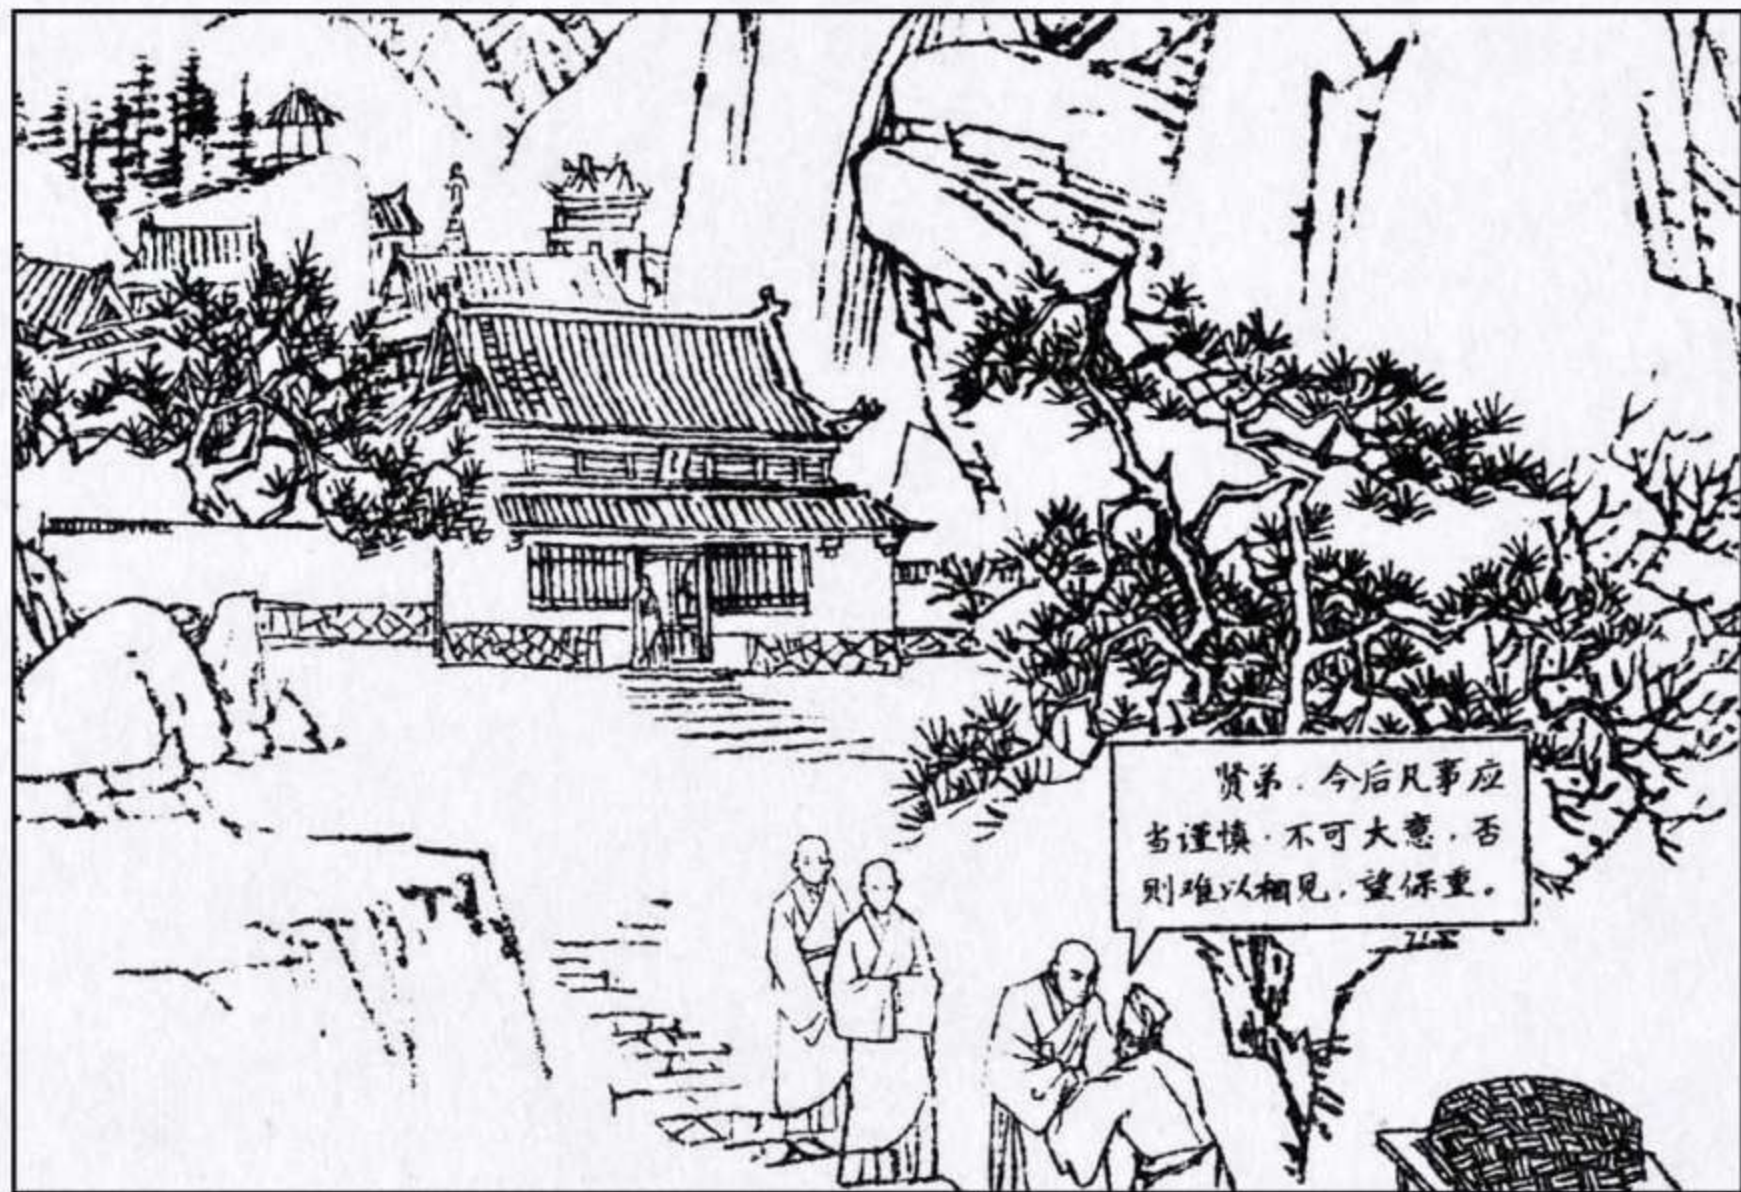 贤弟，今后凡事应
当谨慎，不可大意，否
则难以相见，望保重。